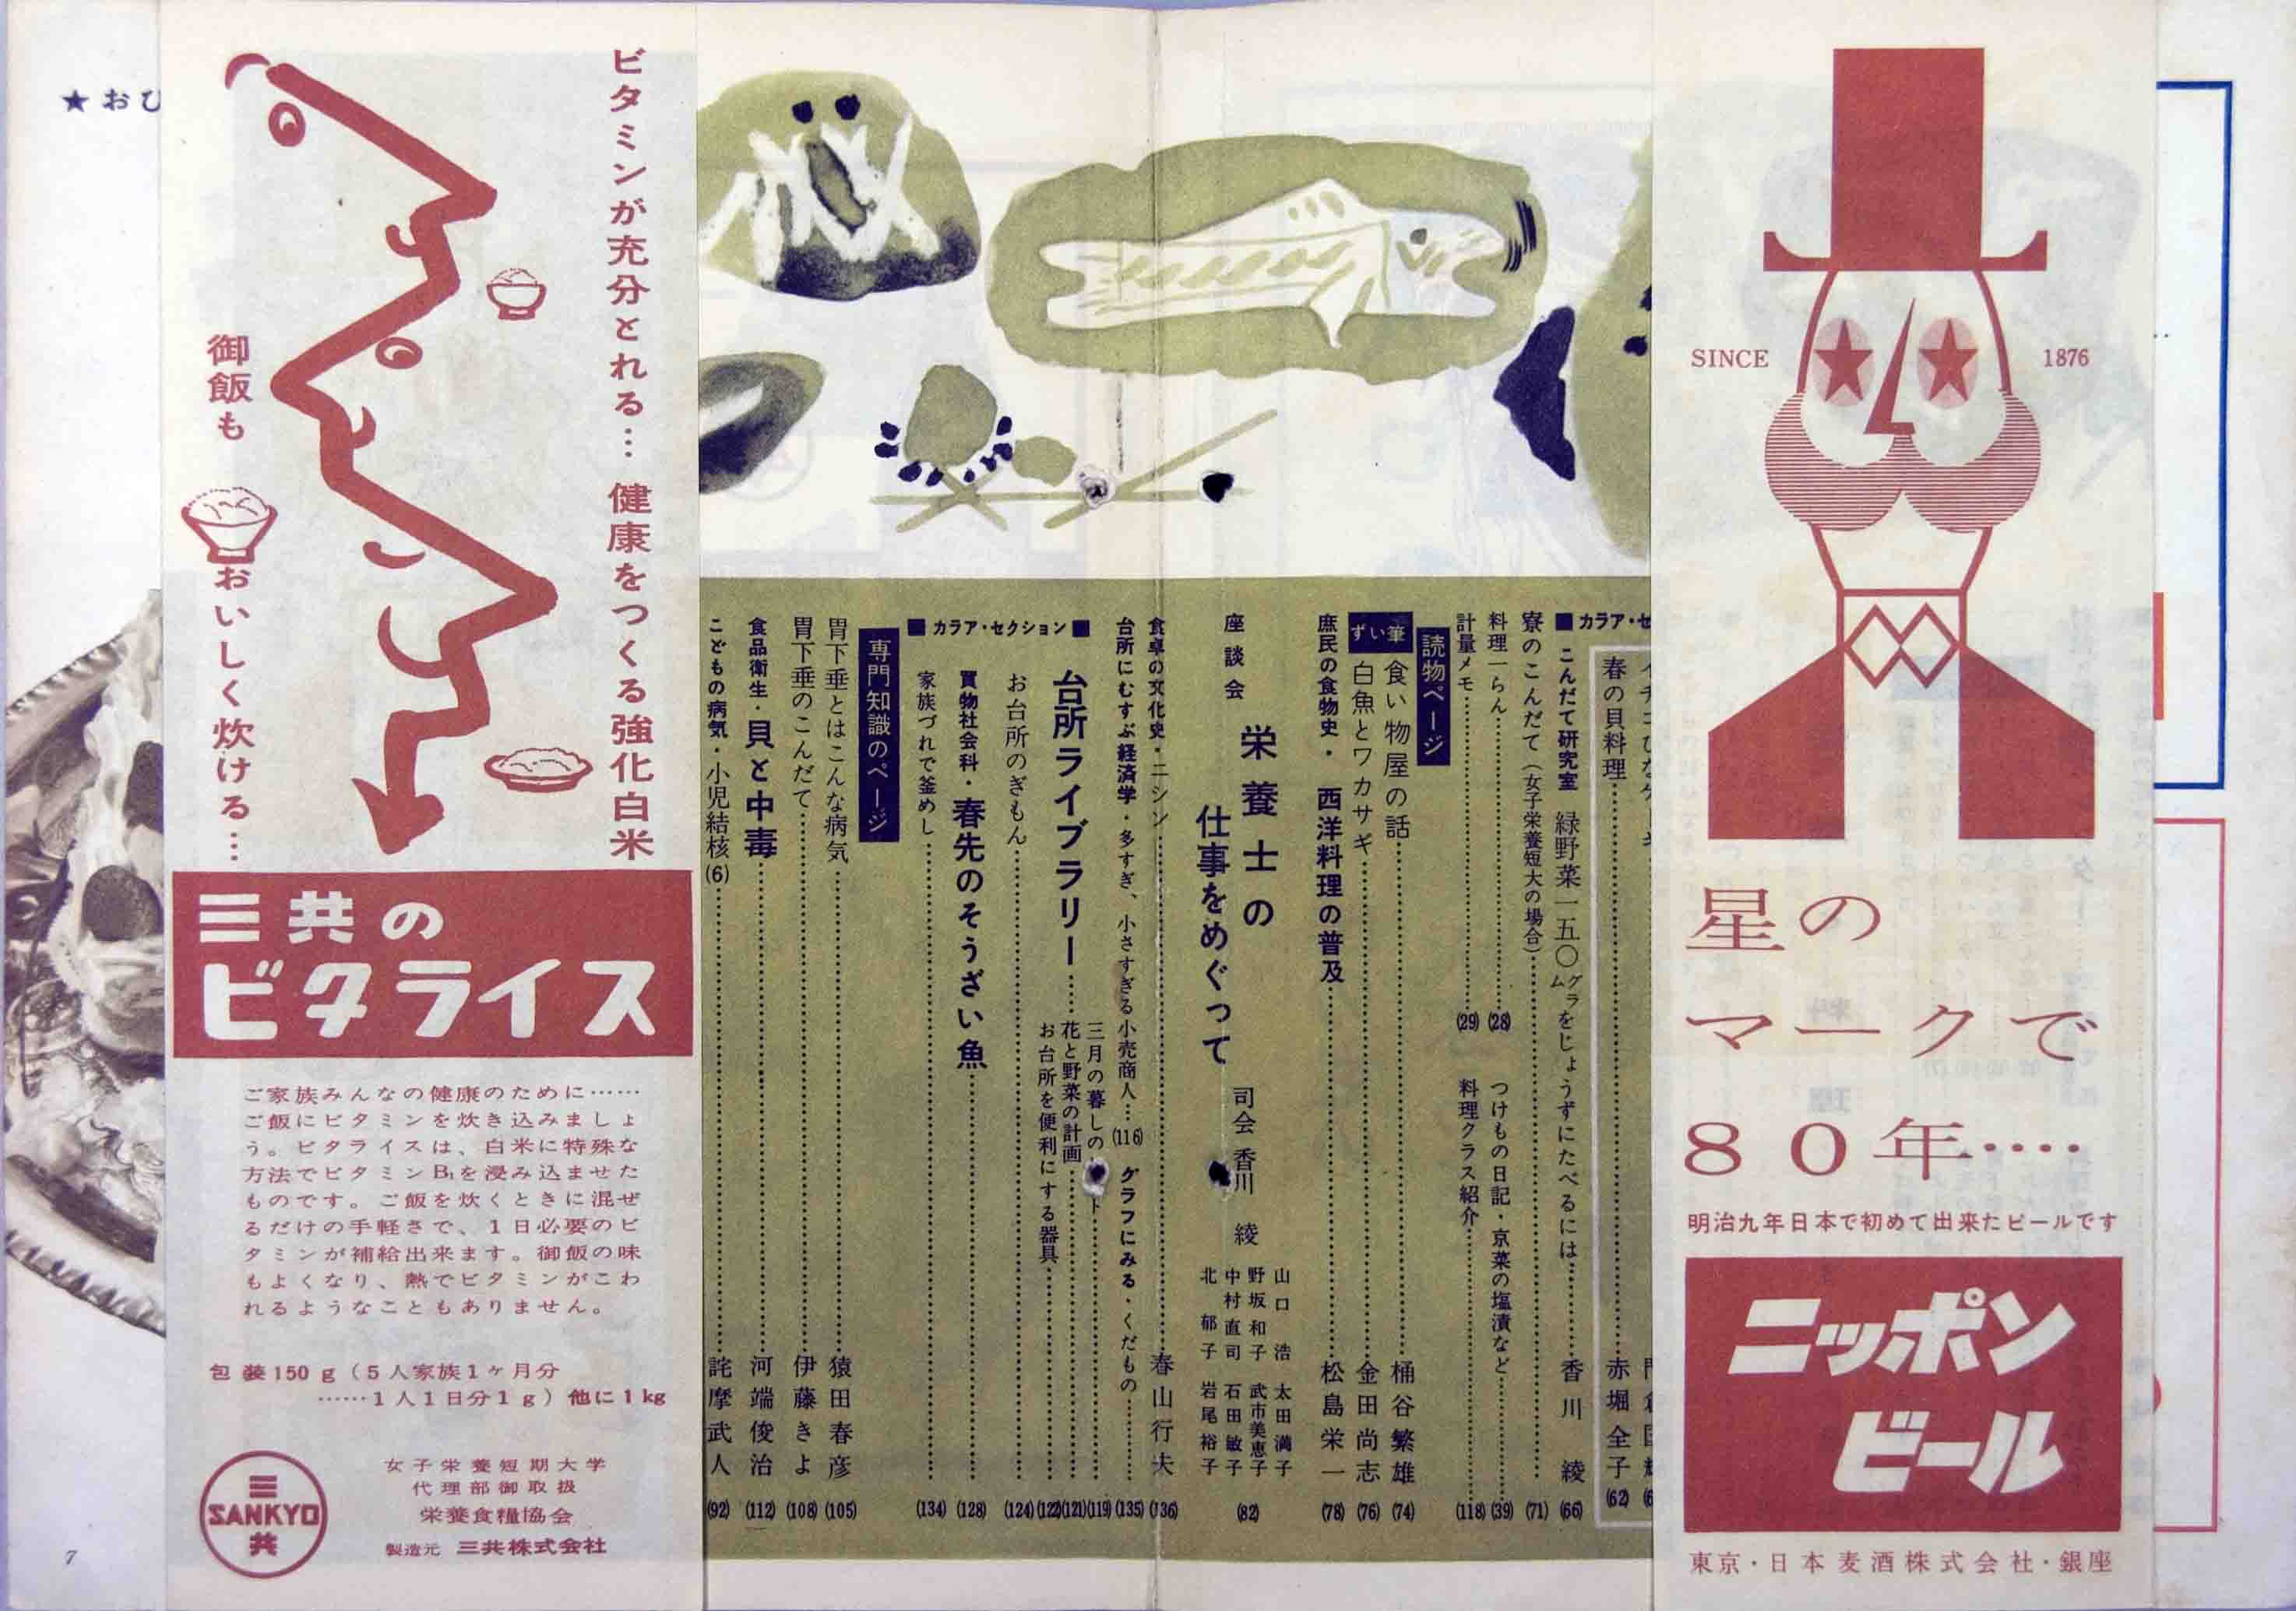 SINCE
1876
星の
マークで
80年‥‥
明治九年日本で初めて出来たビールです
ニッポン
ビール
東京・日本麦酒株式会社・銀座
春の貝料理 赤堀全子 (62)
■カラア・セ
こんだて研究室 緑野菜一五〇グラムをじょうずにたべるには 香川 綾 (66)
寮のこんだて(女子栄養短大の場合) (71)
料理一らん (28)
つけもの日記・京菜の塩漬など (39)
計量メモ (29)
料理クラス紹介 (118)
読物ページ
ずい筆
食い物屋の話 桶谷繁雄 (74)
白魚とワカサギ 金田尚志 (76)
庶民の食物史・西洋料理の普及 松島栄一 (78)
座談会
栄養士の
仕事をめぐって
司会 香川 綾
山口 浩 太田満子
野坂和子 武市美恵子
中村直司 石田敏子
北 郁子 岩尾裕子
(82)
食卓の文化史・ニシン 春山行夫 (136)
台所にむすぶ経済学・多すぎ、小さすぎる小売商人… (116)
グラフにみる・くだもの (135)
■カラア・セクション■
台所ライブラリー
三月の暮しの ト (119)
花と野菜の計画 (121)
お台所を便利にする器具 (122)
お台所のぎもん (124)
買物社会科・春先のそうざい魚 (128)
家族づれで釜めし (134)
専門知識のページ
胃下垂とはこんな病気 猿田春彦 (105)
胃下垂のこんだて 伊藤きよ (108)
食品衛生・貝と中毒 河端俊治 (112)
こどもの病気・小児結核(6) 詫摩武人 (92)
ビタミンが充分とれる… 健康をつくる強化白米
御飯も おいしく炊ける…
三共の
ビタライス
ご家族みんなの健康のために……
ご飯にビタミンを炊き込みましょ
う。ビタライスは、白米に特殊な
方法でビタミンB₁を浸み込ませた
ものです。ご飯を炊くときに混ぜ
るだけの手軽さで、1日必要のビ
タミンが補給出来ます。御飯の味
もよくなり、熱でビタミンがこわ
れるようなこともありません。
包装150g(5人家族1ケ月分
……1人1日分1g)他に1kg
三
SANKYO
共
女子栄養短期大学
代理部御取扱
栄養食糧協会
製造元 三共株式会社
★おひ
7